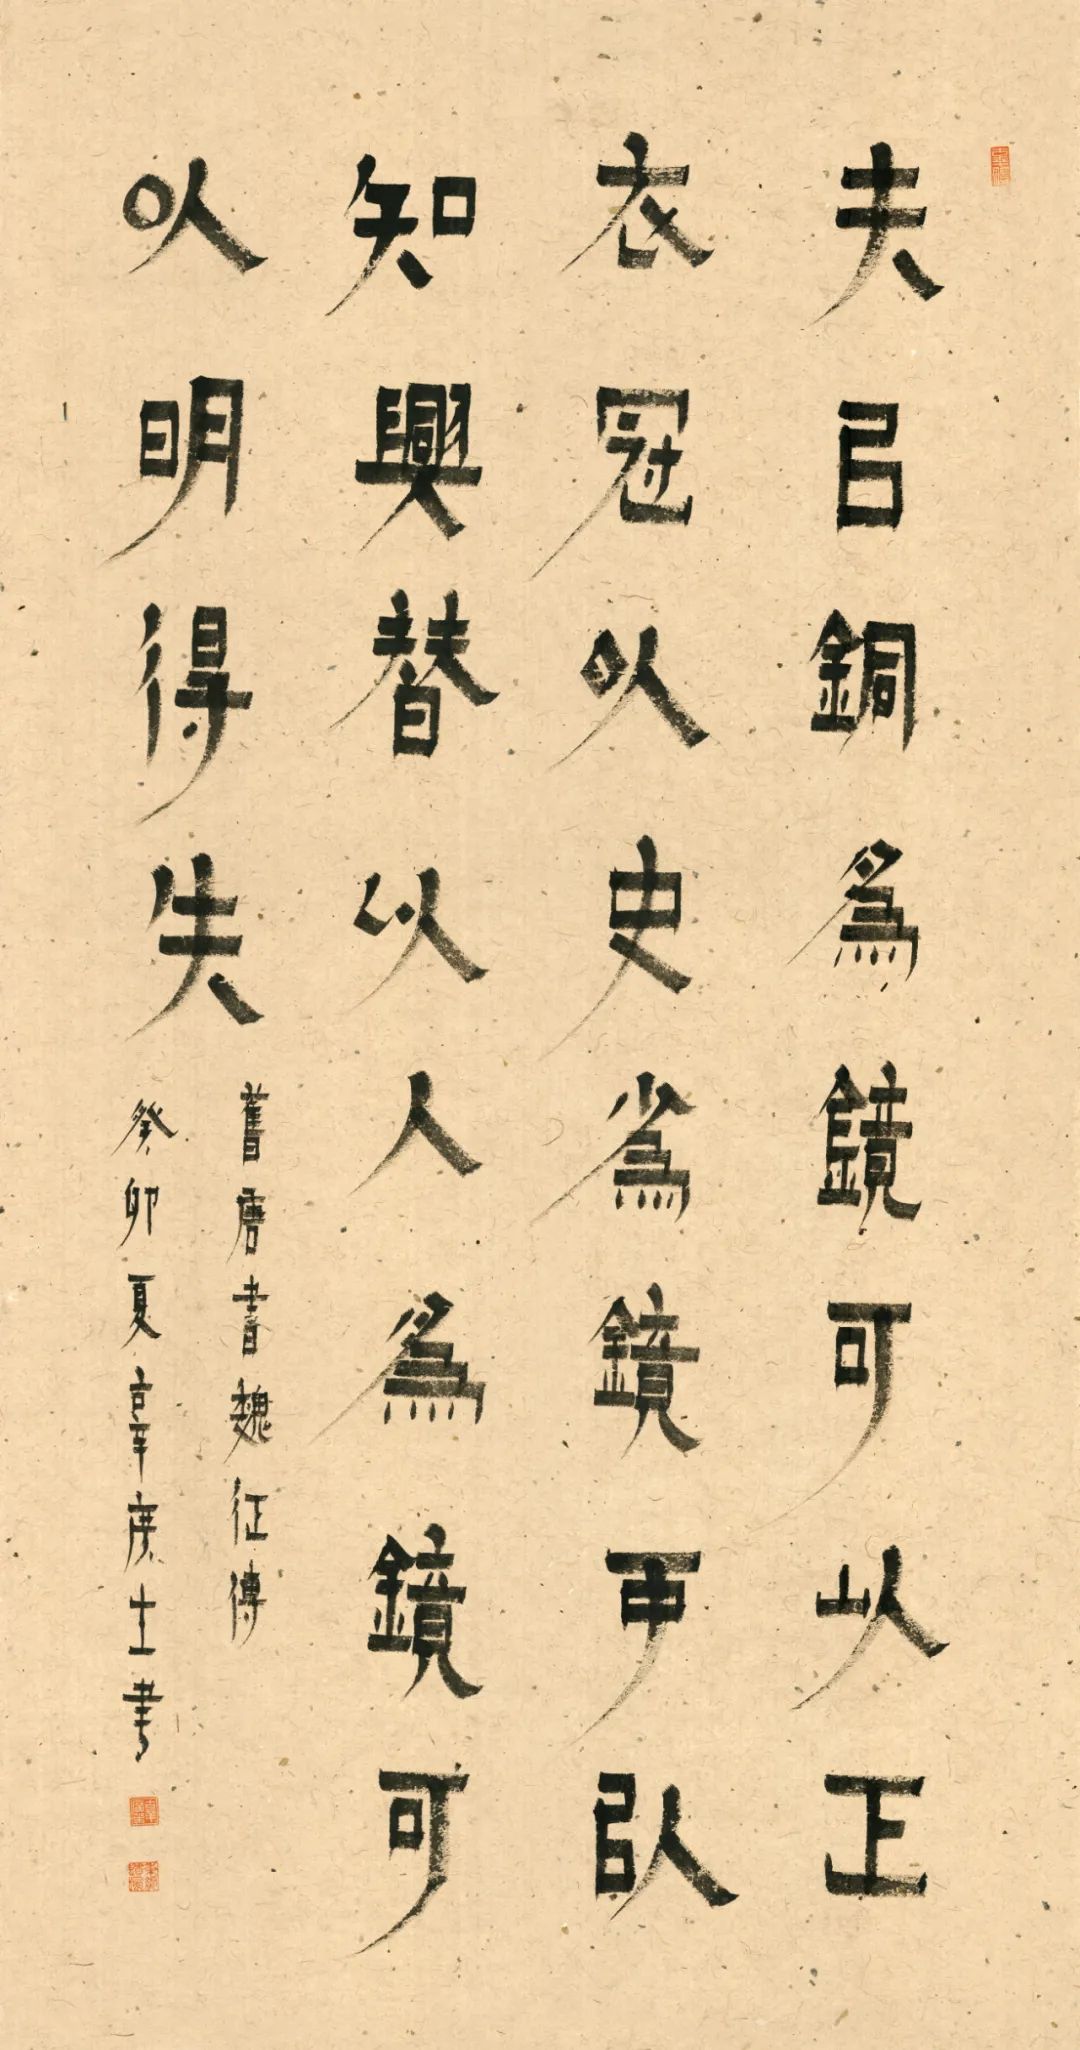 夫㠯銅為鏡可以正
衣冠以史為鏡可以
知興替以人為鏡可
以明得失
舊唐書魏征傳
癸卯夏辜庚士書